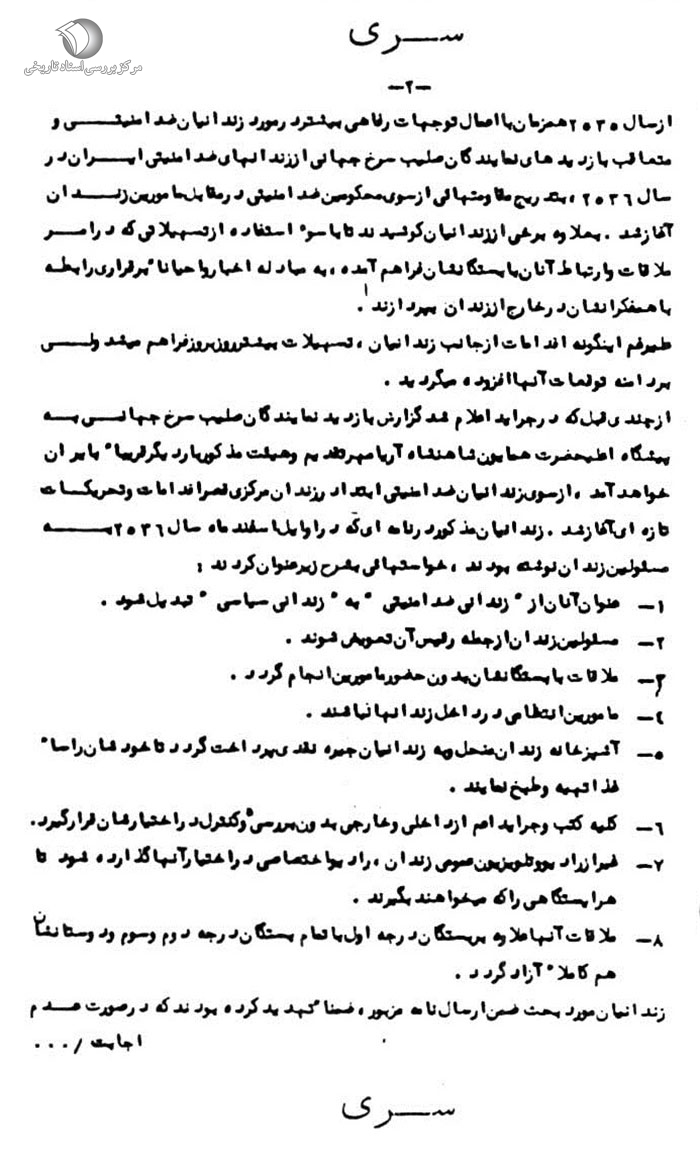 مرکز بررسی اسناد تاریخی
سری
-۲-
از سال ۲۵۳۵ همزمان با اعمال توجهات رفاهی بیشتر در مورد زندانیان ضد امنیتی و
متعاقب بازدیدهای نمایندگان صلیب سرخ جهانی از زندانهای ضد امنیتی ایران در
سال ۲۵۳۶، بتدریج مقاومتهائی از سوی محکومین ضد امنیتی در مقابل مامورین زندان
آغاز شد . بعلاوه برخی از زندانیان کوشیدند تا با سوء استفاده از تسهیلاتی که در امر
ملاقات و ارتباط آنان با بستگانشان فراهم آمده ، به مبادله اخبار و احیاناً برقراری رابطه
با همفکرانشان در خارج از زندان بپردازند .
علیرغم اینگونه اقدامات از جانب زندانیان ، تسهیلات بیشتر روز بروز فراهم میشد ولی
بر دامنه توقعات آنها افزوده میگردید .
از چندی قبل که در جراید اعلام شد گزارش بازدید نمایندگان صلیب سرخ جهانی به
پیشگاه اعلیحضرت همایون شاهنشاه آریامهر تقدیم وهیئت مذکور بار دیگر قریباً بایران
خواهد آمد ، از سوی زندانیان ضد امنیتی ابتدا در زندان مرکزی قصر اقدامات و تحریکات
تازه ای آغاز شد . زندانیان مذکور در نامه ای که در اوایل اسفند ماه سال ۲۵۳۶ به
مسئولین زندان نوشته بودند ، خواستهائی بشرح زیر عنوان کردند :
۱- عنوان آنان از " زندانی ضد امنیتی " به " زندانی سیاسی " تبدیل شود .
۲- مسئولین زندان از جمله رئیس آن تعویض شوند .
۳- ملاقات با بستگانشان بدون حضور مامورین انجام گردد .
٤- مامورین انتظامی در داخل زندانها نباشند .
۵- آشپزخانه زندان منحل و به زندانیان جیره نقدی پرداخت گردد تا خودشان راساً
غذا تهیه و طبخ نمایند .
٦- کلیه کتب و جراید اعم از داخلی و خارجی بدون بررسی و کنترل در اختیارشان قرار گیرد.
۷- غیر از رادیو و تلویزیون عمومی زندان ، رادیو اختصاصی در اختیار آنها گذارده شود تا
هر ایستگاهی را که میخواهند بگیرند .
۸- ملاقات آنها علاوه بر بستگان درجه اول با تمام بستگان درجه دوم وسوم ودوستانشان
هم کاملاً آزاد گردد .
زندانیان مورد بحث ضمن ارسال نامه مزبور، ضمناً تهدید کرده بودند که در صورت عدم
اجابت /...
سری